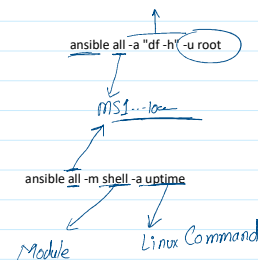 ansible all -a "df -h" -u root
MS1...100
ansible all -m shell -a uptime
Module
Linux Command